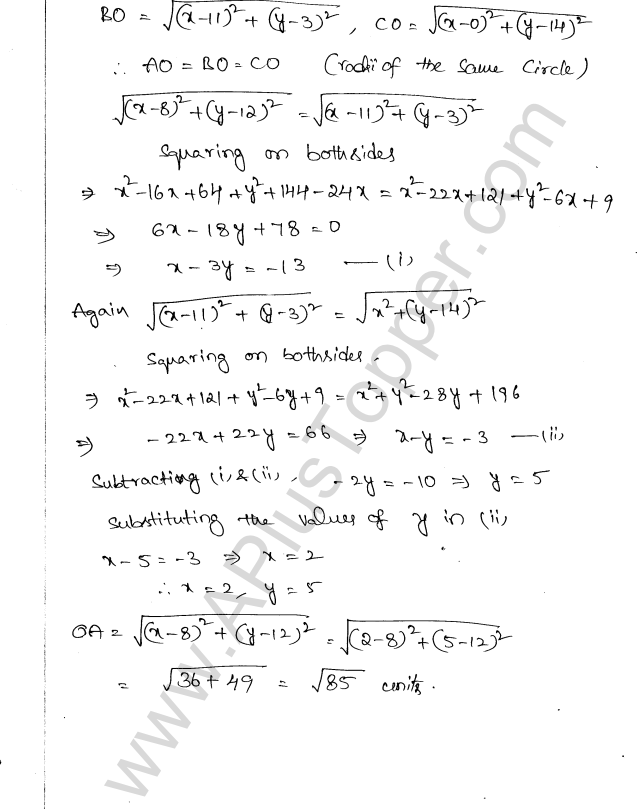 BO = √(x-11)² + (y-3)² , CO = √(x-0)² + (y-14)²
∴ AO = BO = CO (radii of the same circle)
√(x-8)² + (y-12)² = √(x-11)² + (y-3)²
Squaring on bothsides
⇒ x²-16x+64+y²+144-24x = x²-22x+121+y²-6x+9
⇒ 6x - 18y + 78 = 0
⇒ x - 3y = -13 — (i)
Again √(x-11)² + (y-3)² = √x²+(y-14)²
Squaring on bothsides.
⇒ x²-22x+121+y²-6y+9 = x²+y²-28y+196
⇒ -22x+22y = 66 ⇒ x-y = -3 — (ii)
Subtracting (i) & (ii), -2y = -10 ⇒ y = 5
Substituting the values of y in (ii)
x-5 = -3 ⇒ x = 2
∴ x = 2, y = 5
OA = √(x-8)² + (y-12)² = √(2-8)² + (5-12)²
= √36+49 = √85 units.
www.APlusTopper.com